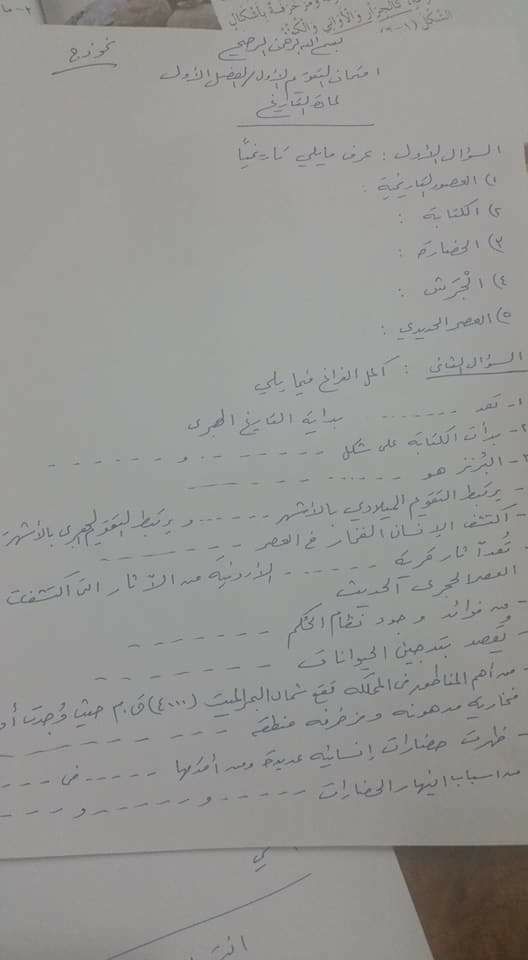 كالجرار والأواني والكؤوس
نموذج
بسم الله الرحمن الرحيم
امتحان التقويم الأول / الفصل الأول
لمادة التاريخ
السؤال الأول : عرف ما يلي تاريخياً
١) العصور التاريخية :
٢) الكتابة :
٣) الحضارة :
٤) الجرش :
٥) العصر الحديدي :
السؤال الثاني : أكمل الفراغ فيما يلي
١- تعد ........ بداية التاريخ الهجري
٢- بدأت الكتابة على شكل ........ و ........
٣- البرونز هو ........
- يرتبط التقويم الميلادي بالأشهر ...... و يرتبط التقويم الهجري بالأشهر
- اكتشف الإنسان الفخار في العصر ........
- تُعد آثار قرية ........ الأردنية من الآثار التي اكتشفت
العصر الحجري الحديث
- من فوائد وجود نظام الحكم ........
- يُقصد بتدجين الحيوانات ........
- من أهم المناطق في المملكة تقع شمال البحر الميت (٤٠٠٠) ق.م حيث وُجدت
فخارية مدهونة و مزخرفة منطقة ........
- ظهرت حضارات إنسانية عديدة ومن أقدمها ...... في ......
من أسباب انهيار الحضارات ...... و ...... و ......